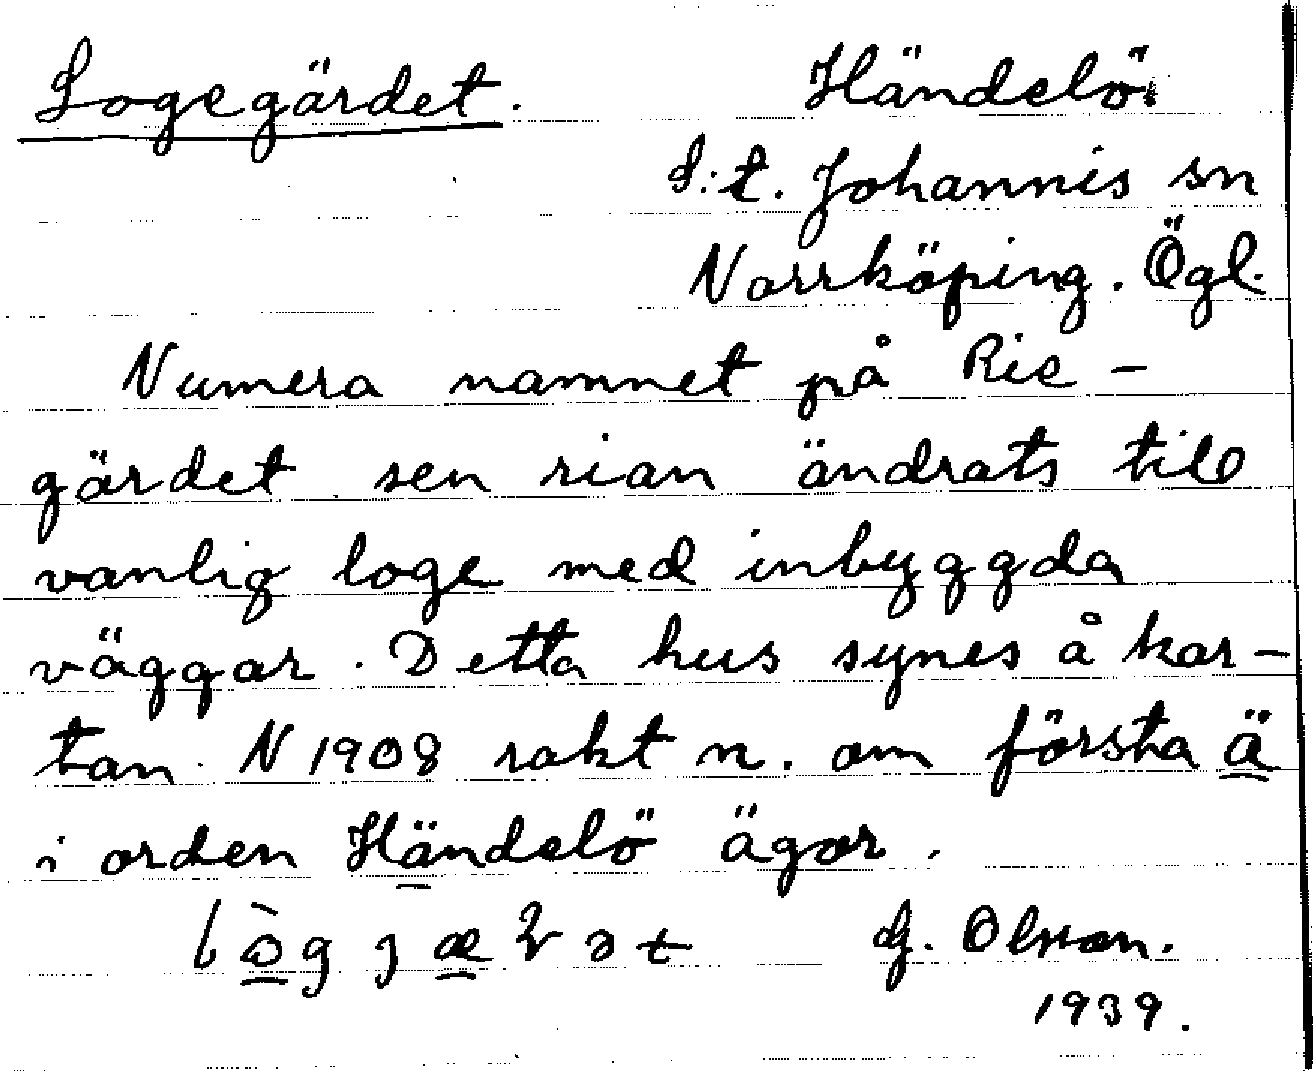 Logegärdet. Händelö.
S:t. Johannis sn
Norrköping. Ögl.
Numera namnet på Rie-
gärdet sen rian ändrats till
vanlig loge med inbyggda
väggar. Detta hus synes å kar-
tan N 1908 rakt n. om första ä
i orden Händelö ägor.
G. Olsson.
1939.